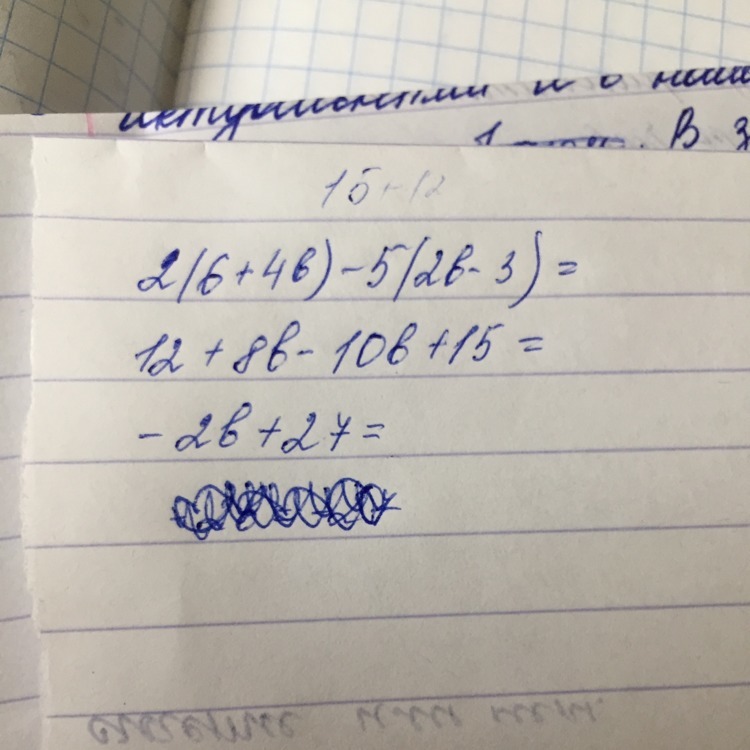 и о
1 В з
15+12
2(6+4в)-5(2в-3)=
12+8в-10в+15=
-2в+27=